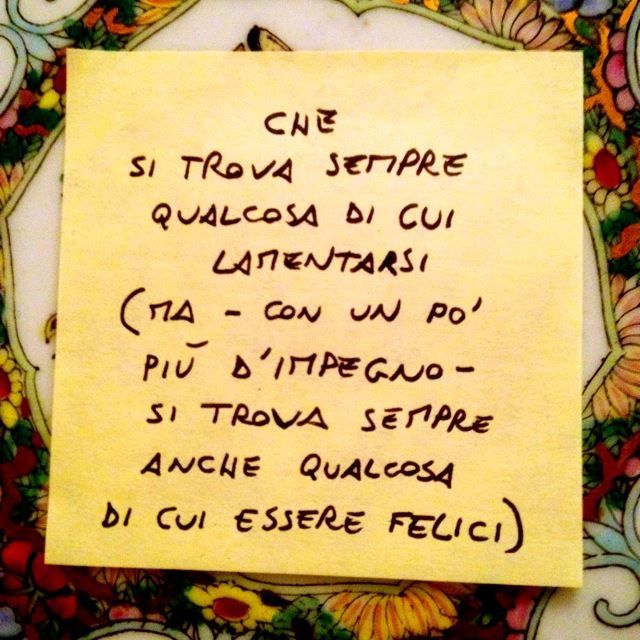 CHE
SI TROVA SEMPRE
QUALCOSA DI CUI
LAMENTARSI
(MA - CON UN PO'
PIÙ D'IMPEGNO-
SI TROVA SEMPRE
ANCHE QUALCOSA
DI CUI ESSERE FELICI)